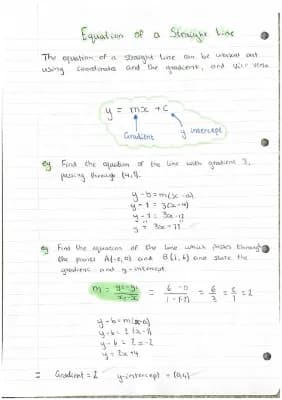 Equation of a Straight Line
The equation of a straight line can be worked out
using coordinates and the gradient, and vice versa
y = mx + c
Gradient
y intercept
eg Find the equation of the line with gradient 3,
passing through (4,1).
y - b = m(x - a)
y - 1 = 3(x - 4)
y - 1 = 3x - 12
y = 3x - 11
eg Find the equation of the line which passes through
the points A(-2,0) and B(1,6) and state the
gradient and y-intercept.
m = y₂-y₁/x₂-x₁ = 6-0/1-(-2) = 6/3 = 2/1 = 2
y - b = m(x-a)
y - 6 = 2(x-1)
y - 6 = 2x-2
y = 2x+4
= Gradient = 2 y-intercept = (0,4)